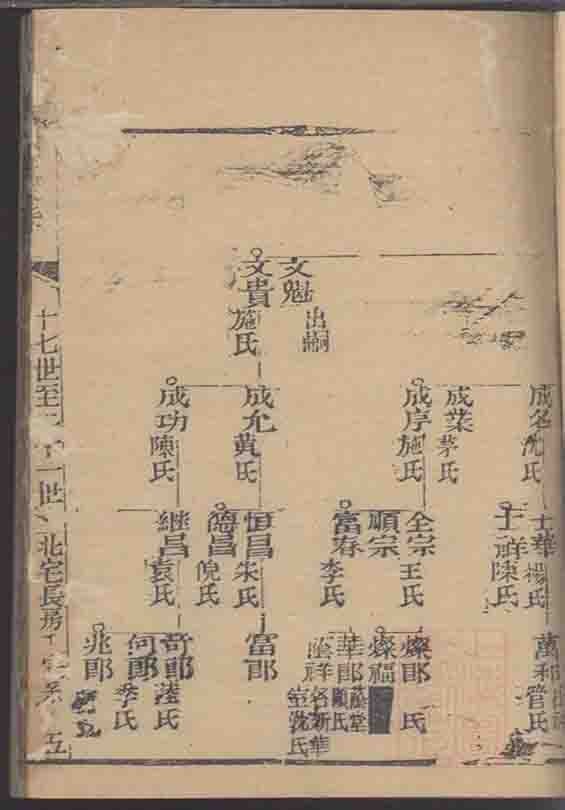 文魁 出嗣
文貴 施氏
成名 沈氏
成業 茅氏
成序 施氏
成允 黃氏
成功 陳氏
士華 楊氏
士祥 陳氏
全宗 王氏
順宗
富春 李氏
恒昌 朱氏
德昌 倪氏
繼昌 袁氏
萬和 管氏
燦郎 氏
燦福
華郎 顧氏
蔭祥 沈氏
富郎
奇郎 陸氏
何郎 李氏
兆郎
十七世至二十一世 北宅長房
五